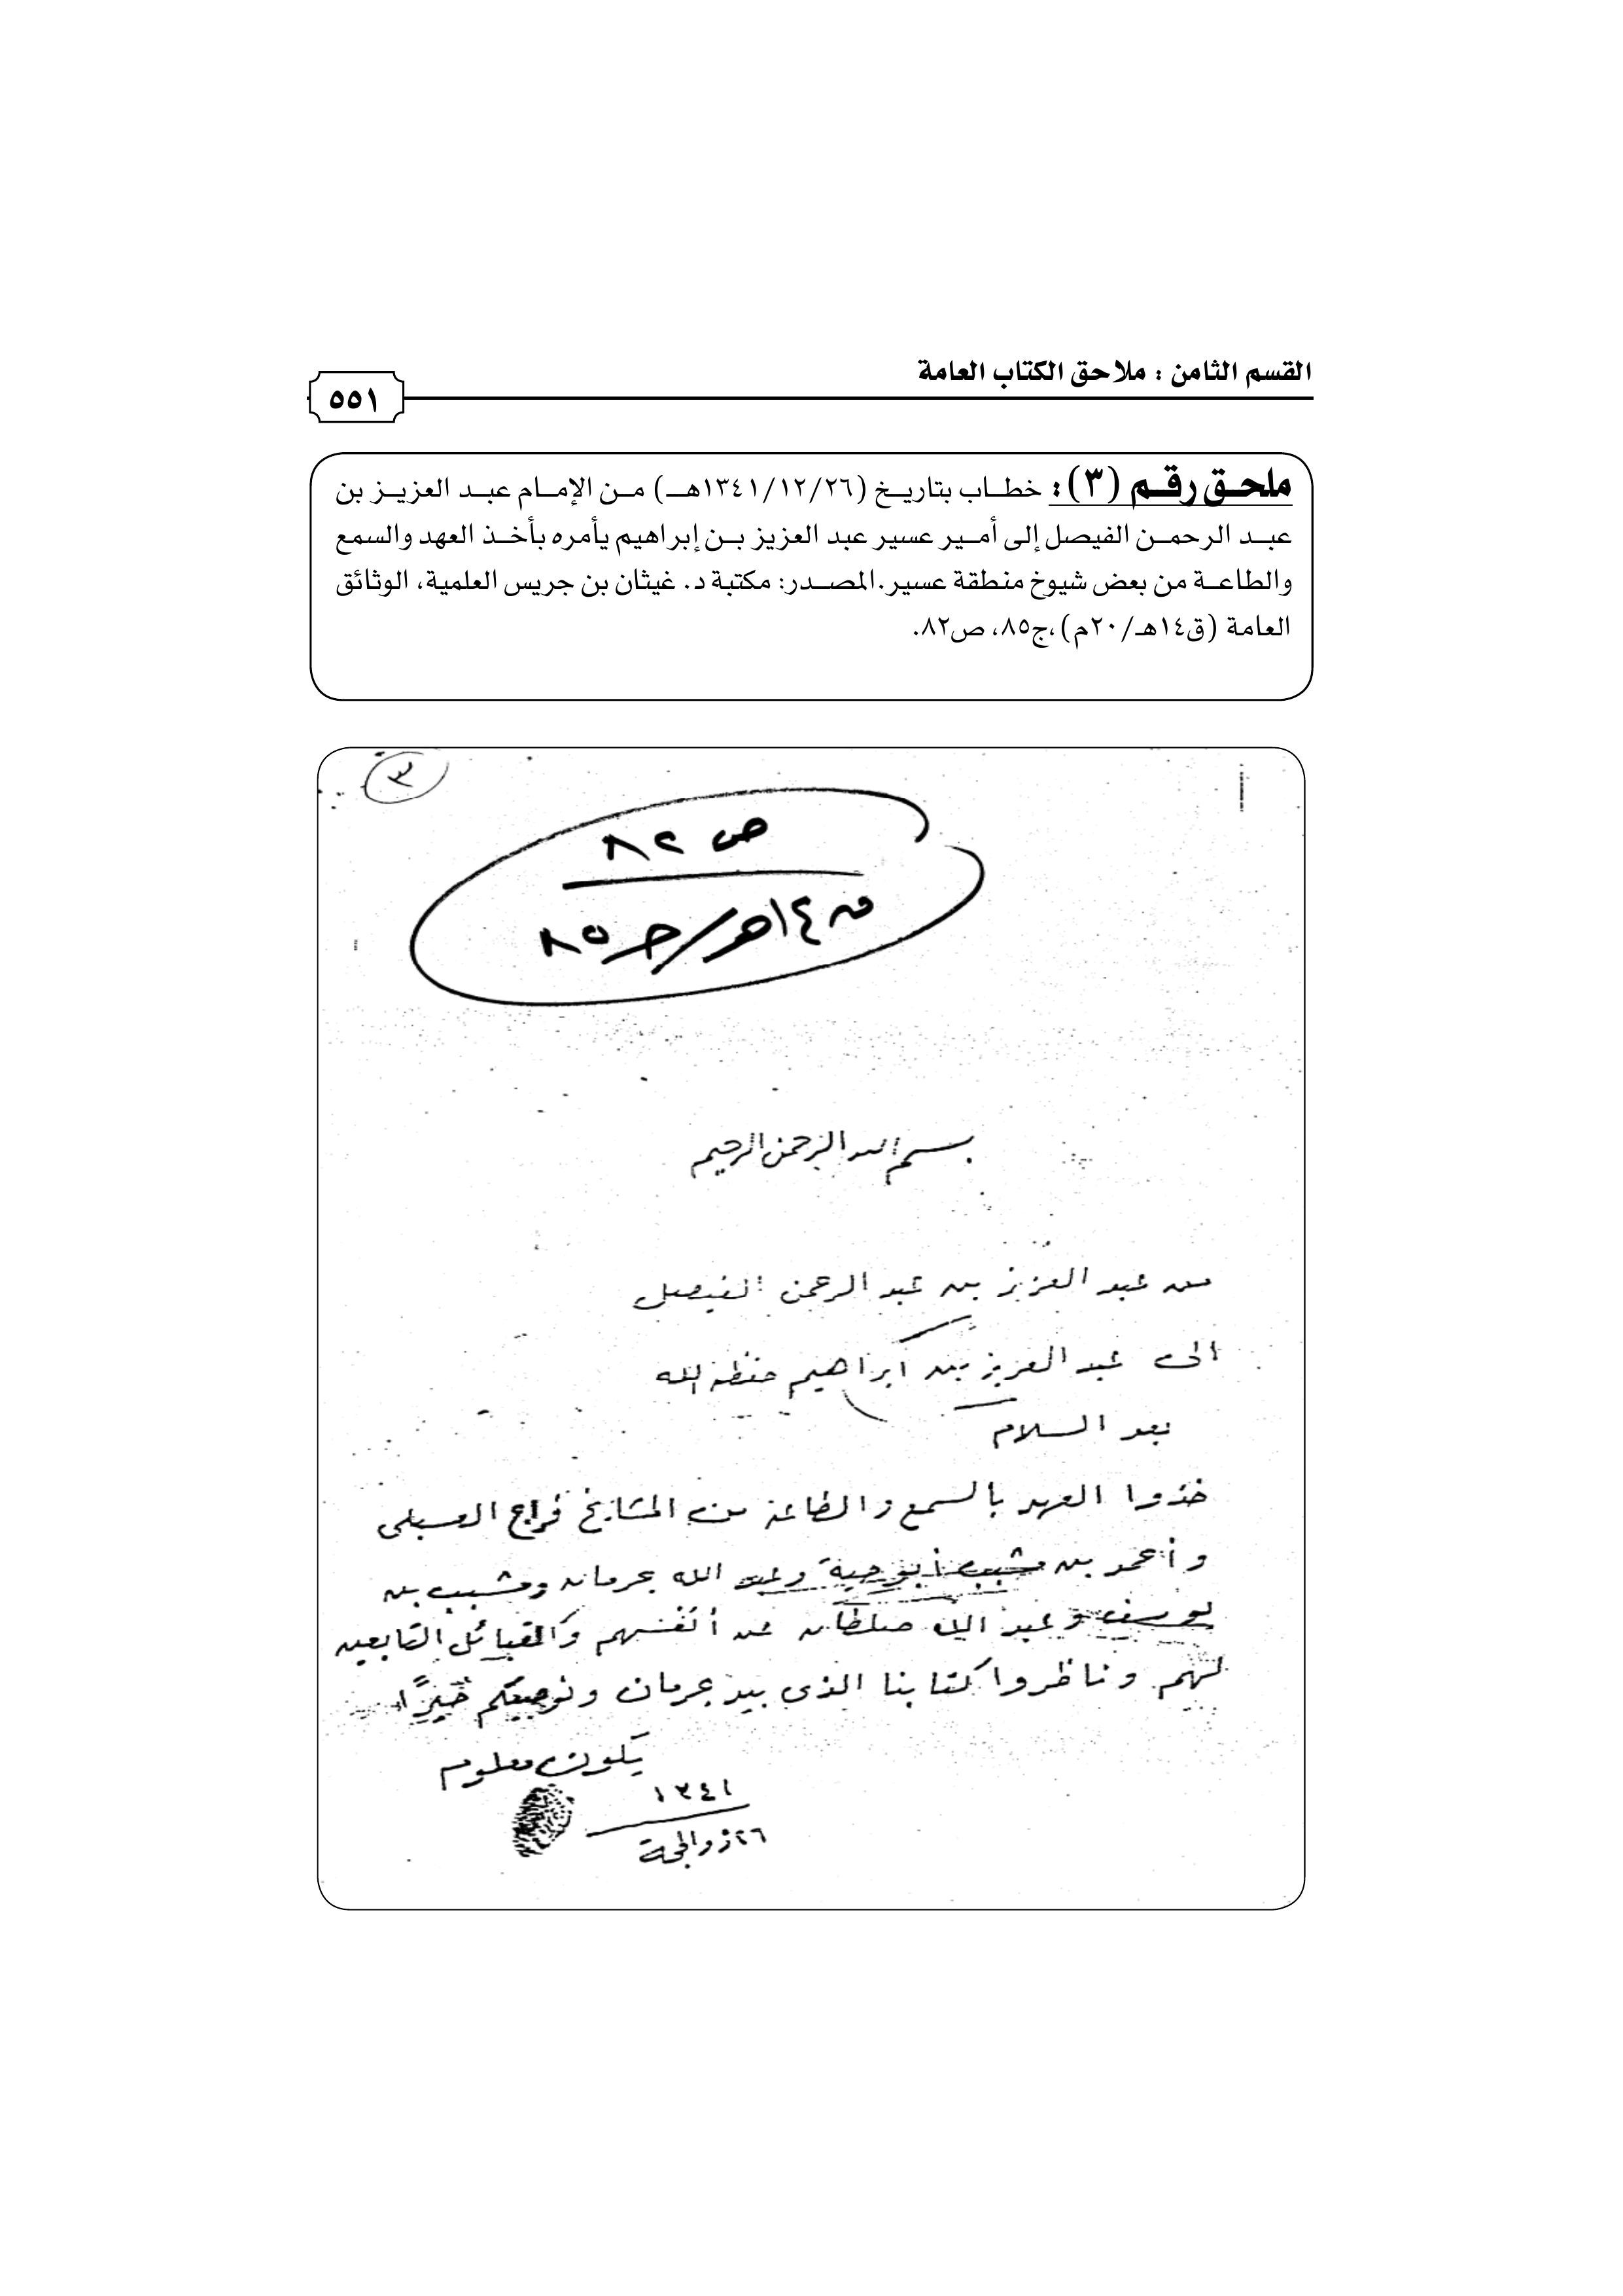 القسم الثامن : ملاحق الكتاب العامة
٥٥١
ملحق رقم (٣): خطاب بتاريخ (١٣٤١/١٢/٢٦هـ) من الإمام عبد العزيز بن
عبد الرحمن الفيصل إلى أمير عسير عبد العزيز بن إبراهيم يأمره بأخذ العهد والسمع
والطاعة من بعض شيوخ منطقة عسير.المصدر: مكتبة د. غيثان بن جريس العلمية، الوثائق
العامة (ق١٤هـ/٢٠م)،ج٨٥، ص٨٢.
٣
ص ٨٢
ق ١٤هـ/جـ ٨٥
بسم الله الرحمن الرحيم
من عبد العزيز بن عبد الرحمن الفيصل
الى عبد العزيز بن ابراهيم حفظه الله
بعد السلام
خذوا العهد بالسمع والطاعة من المشايخ فراج العسبلي
وأحمد بن مشبب أبو حية وعبد الله بحرمان ومشبب بن
يوسف وعبد الله صلطان عن أنفسهم والقبائل التابعين
لهم وناظروا كتابنا الذي بيد بحرمان ونوصيكم خيرًا
يكون معلوم
١٣٤١
٢٦ ذو الحجة